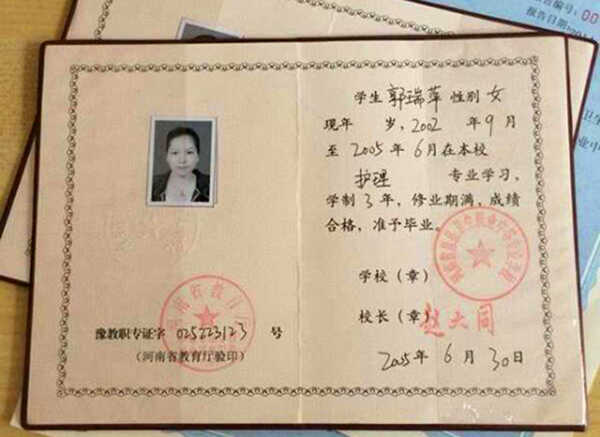 学生 郭瑞萍 性别 女
现年 岁，2002 年9月
至 2005年6月在本校
护理 专业学习，
学制3年，修业期满，成绩
合格，准予毕业。
学校（章）
校长（章）赵大同
2005年 6月 30日
河南省教育厅
豫教职专证字 025223123 号
（河南省教育厅验印）
报告编号：00
报告日期：201